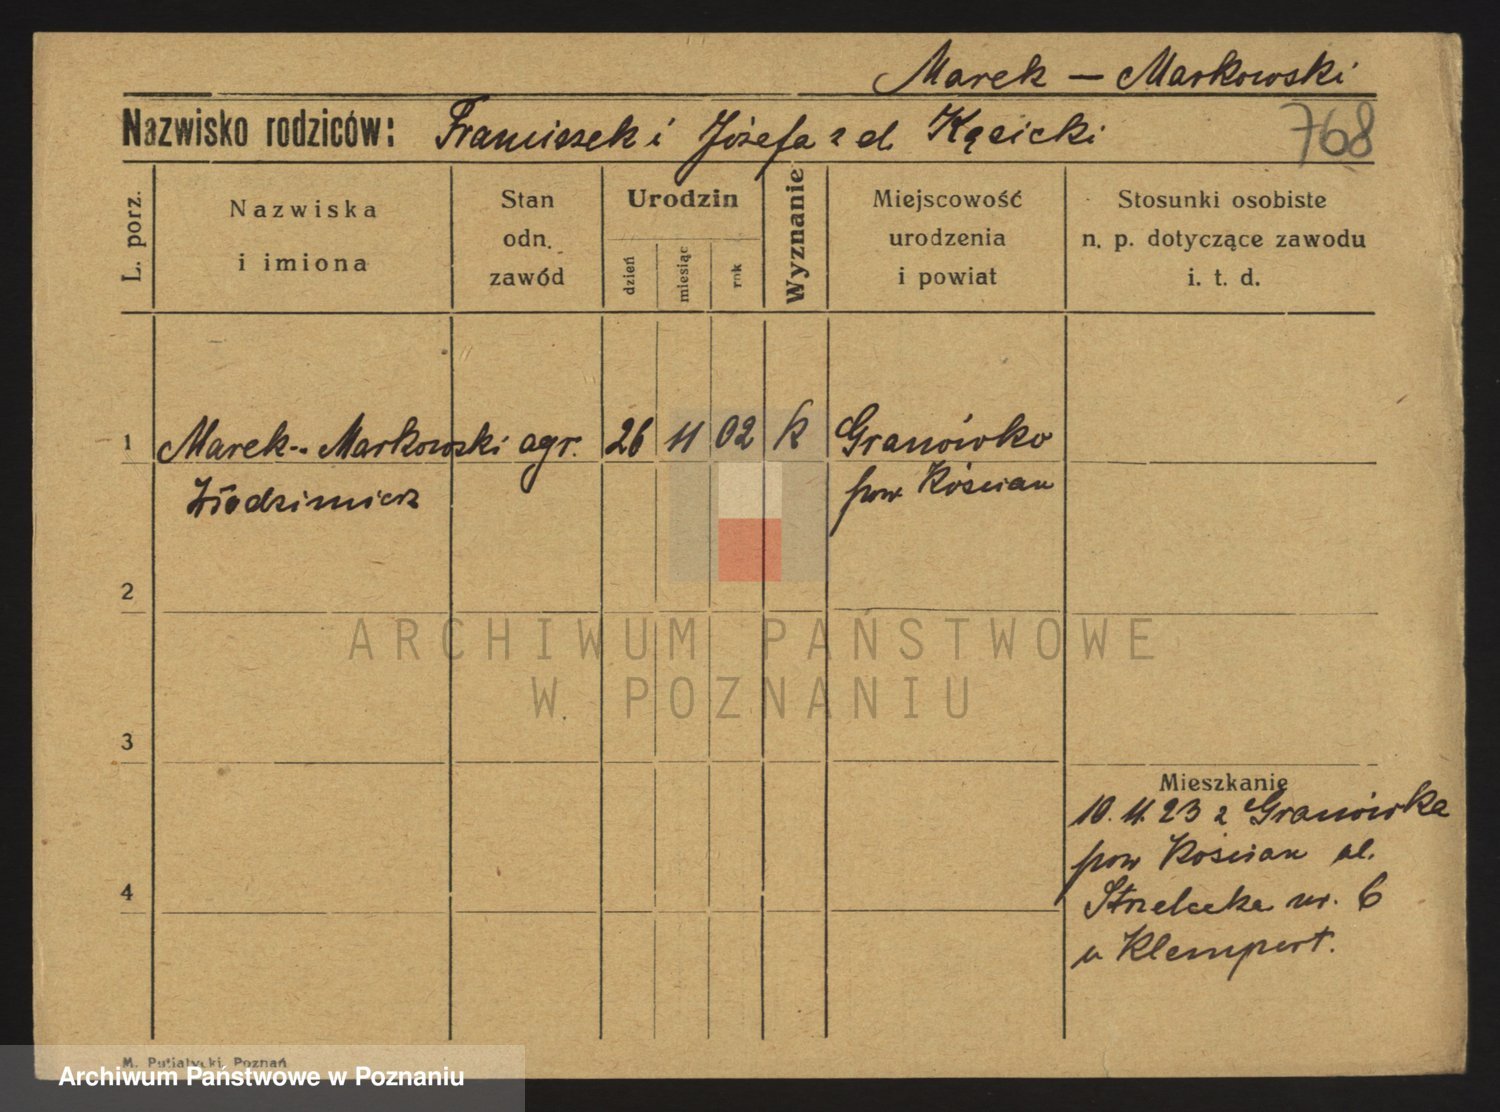 Marek – Markowski
Nazwisko rodziców: Franciszek i Józefa z d. Kęsicki
768
L. porz.
Nazwiska
i imiona
Stan
odn.
zawód
Urodzin
dzień
miesiąc
rok
Wyznanie
Miejscowość
urodzenia
i powiat
Stosunki osobiste
n. p. dotyczące zawodu
i. t. d.
1 Marek - Markowski agr. 26 11 02 k Granówko
Włodzimierz pow Kościan
2
ARCHIWUM PAŃSTWOWE
W POZNANIU
3
Mieszkanie
10. 11. 23 z Granówka
pow Kościan ul.
4
Strzelecka nr. 6
u Klempert.
M. Putiatycki, Poznań
Archiwum Państwowe w Poznaniu